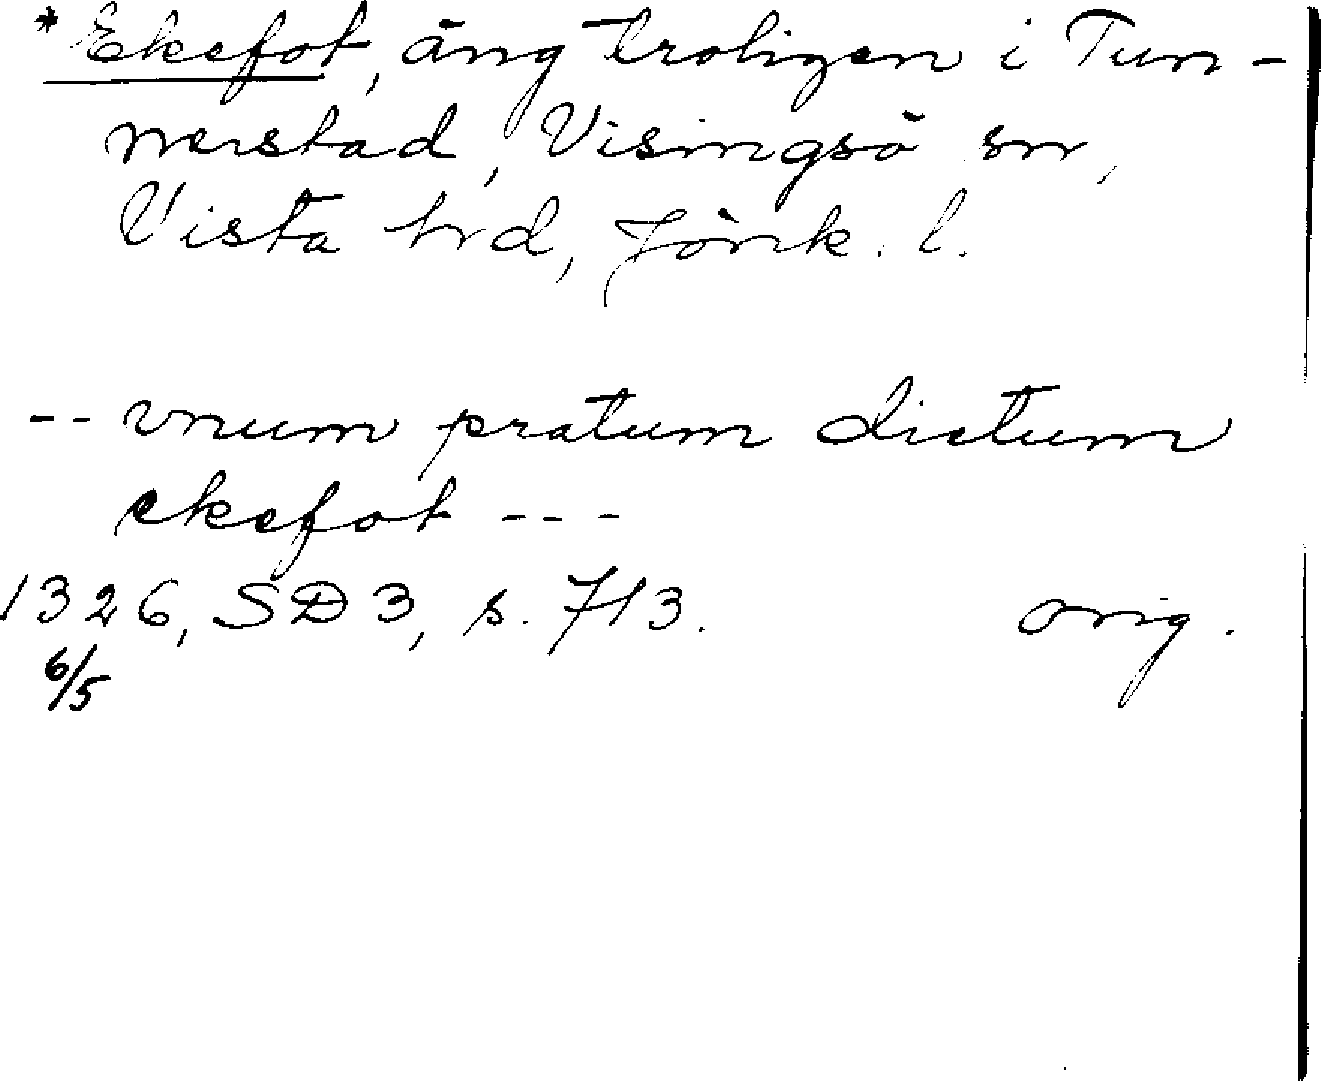 *Ekefot, äng troligen i Tun-
nerstad, Visingsö sn,
Vista hrd, Jönk. l.
-- vnum pratum dictum
ekefot ---
1326, SD 3, s. 713. orig.
6/5